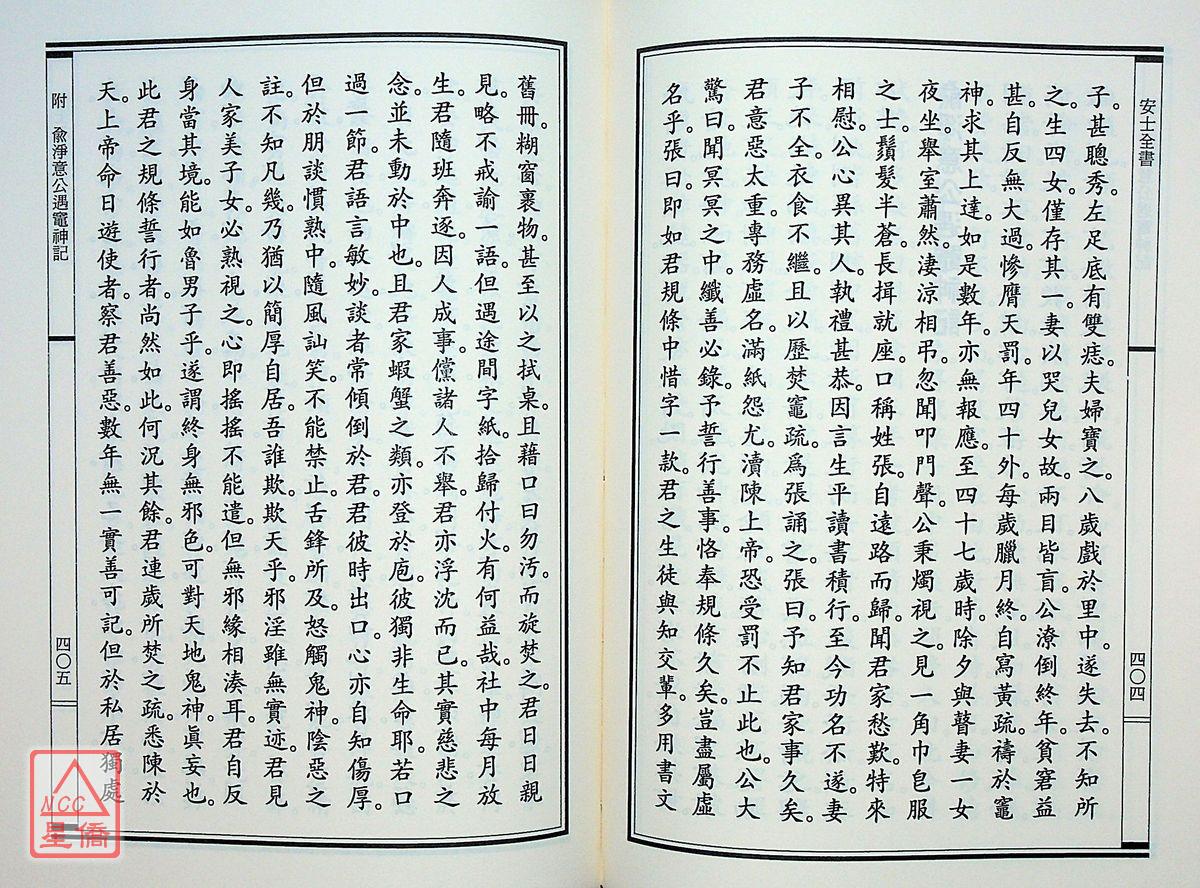 安士全書
四〇四
子。甚聰秀。左足底有雙痣。夫婦寶之。八歲戲於里中。遂失去。不知所
之。生四女。僅存其一。妻以哭兒女故。兩目皆盲。公潦倒終年。貧窘益
甚。自反無大過。慘膺天罰。年四十外。每歲臘月終。自寫黃疏。禱於竈
神。求其上達。如是數年。亦無報應。至四十七歲時。除夕與瞽妻一女
夜坐。舉室蕭然。淒涼相弔。忽聞叩門聲。公秉燭視之。見一角巾皂服
之士。鬚髮半蒼。長揖就座。口稱姓張。自遠路而歸。聞君家愁歎。特來
相慰。公心異其人。執禮甚恭。因言生平讀書積行。至今功名不遂。妻
子不全。衣食不繼。且以歷焚竈疏。為張誦之。張曰。予知君家事久矣。
君意惡太重。專務虛名。滿紙怨尤。瀆陳上帝。恐受罰不止此也。公大
驚曰。聞冥冥之中。纖善必錄。予誓行善事。恪奉規條久矣。豈盡屬虛
名乎。張曰。即如君規條中惜字一款。君之生徒與知交輩。多用書文
舊冊。糊窗裹物。甚至以之拭桌。且藉口曰勿汚。而旋焚之。君日日親
見。略不戒諭一語。但遇途間字紙。拾歸付火。有何益哉。社中每月放
生。君隨班奔逐。因人成事。儻諸人不舉。君亦浮沈而已。其實慈悲之
念。並未動於中也。且君家蝦蟹之類。亦登於庖。彼獨非生命耶。若口
過一節。君語言敏妙。談者常傾倒於君。君彼時出口。心亦自知傷厚。
但於朋談慣熟中。隨風訕笑。不能禁止。舌鋒所及。怒觸鬼神。陰惡之
註。不知凡幾。乃猶以簡厚自居。吾誰欺。欺天乎。邪淫雖無實迹。君見
人家美子女。必熟視之。心即搖搖不能遣。但無邪緣相湊耳。君自反
身當其境。能如魯男子乎。遂謂終身無邪色。可對天地鬼神。眞妄也。
此君之規條誓行者。尚然如此。何況其餘。君連歲所焚之疏。悉陳於
天。上帝命日遊使者。察君善惡。數年無一實善可記。但於私居獨處
附 兪淨意公遇竈神記
四〇五
NCC
星僑